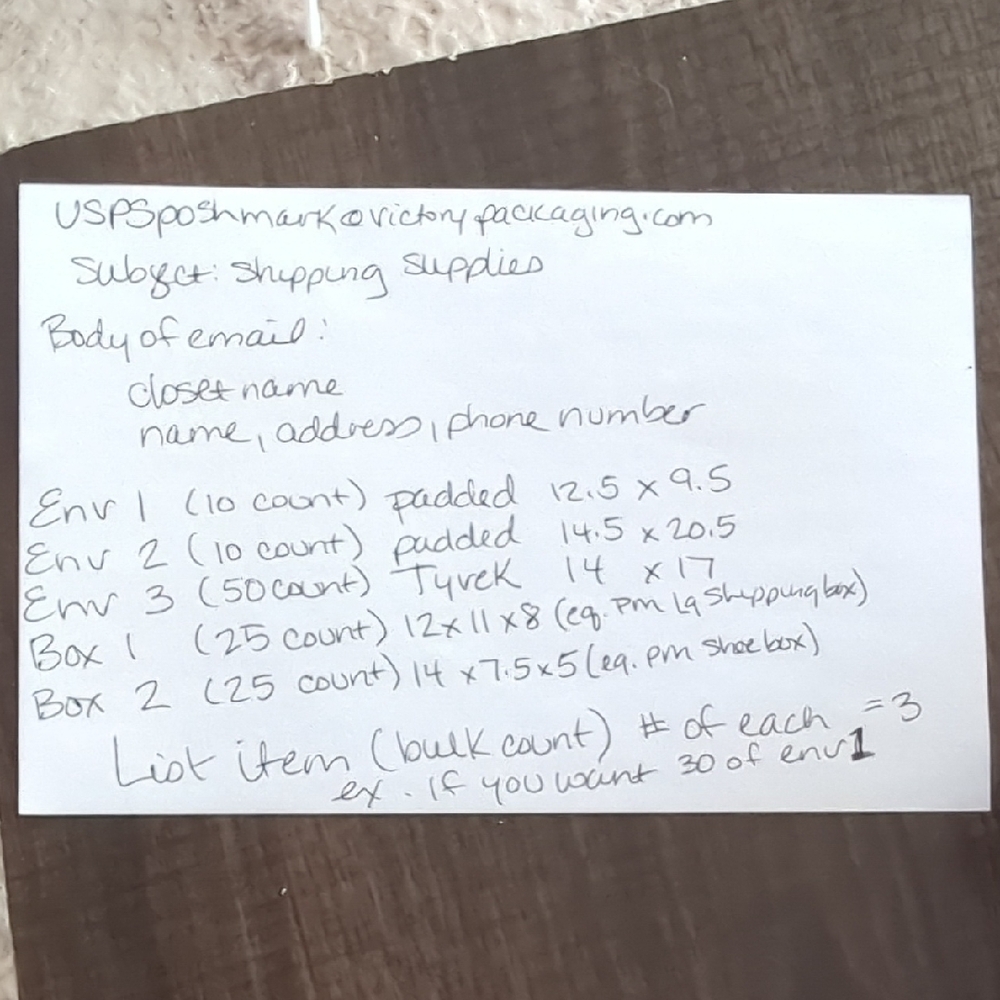 USPSposhmark@victorypackaging.com
Subject: shipping supplies
Body of email:
closet name
name, address, phone number
Env 1 (10 count) padded 12.5 x 9.5
Env 2 (10 count) padded 14.5 x 20.5
Env 3 (50 count) Tyvek 14 x 17
Box 1 (25 count) 12 x 11 x 8 (eq. pm lg shipping box)
Box 2 (25 count) 14 x 7.5 x 5 (eq. pm shoe box)
List item (bulk count) # of each = 3
ex. if you want 30 of env 1